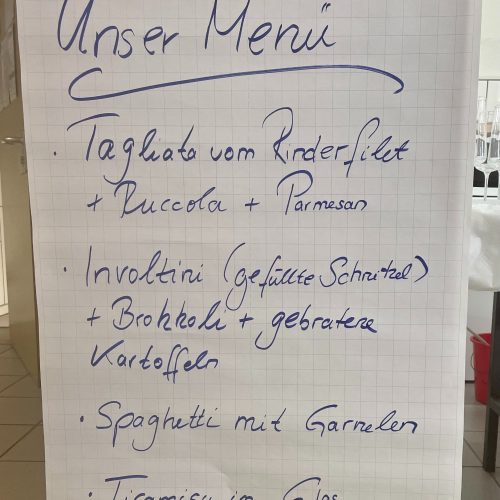 Unser Menü
· Tagliata vom Rinderfilet
+ Ruccola + Parmesan
· Involtini (gefüllte Schnitzel)
+ Brokkoli + gebratene
Kartoffeln
· Spaghetti mit Garnelen
· Tiramisu im Glas